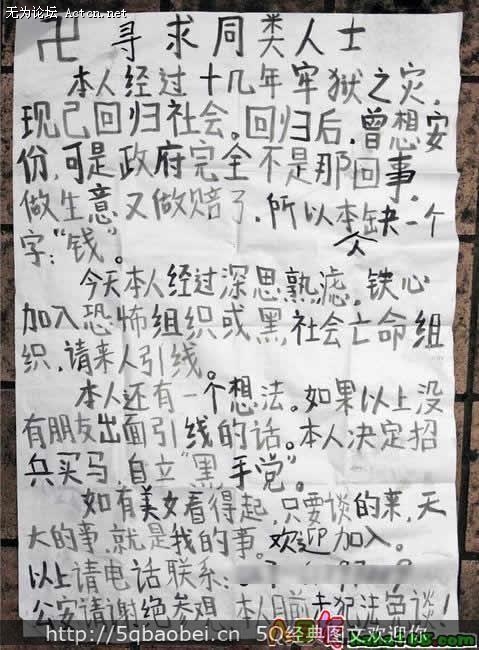 无为论坛 Actcn.net
卍 寻求同类人士
本人经过十几年牢狱之灾,
现已回归社会。回归后,曾想安
份,可是政府完全不是那回事。
做生意又做赔了,所以本人缺一个
字:“钱”。
今天本人经过深思熟虑,铁心
加入恐怖组织或黑社会亡命组
织,请来人引线。
本人还有一个想法。如果以上没
有朋友出面引线的话。本人决定招
兵买马 自立“黑手党”。
如有美女看得起,只要谈的来,天
大的事,就是我的事。欢迎加入。
以上请电话联系:
公安请谢绝参观 本人目前未犯法免谈!
http://5qbaobei.cn 5Q经典图文欢迎你